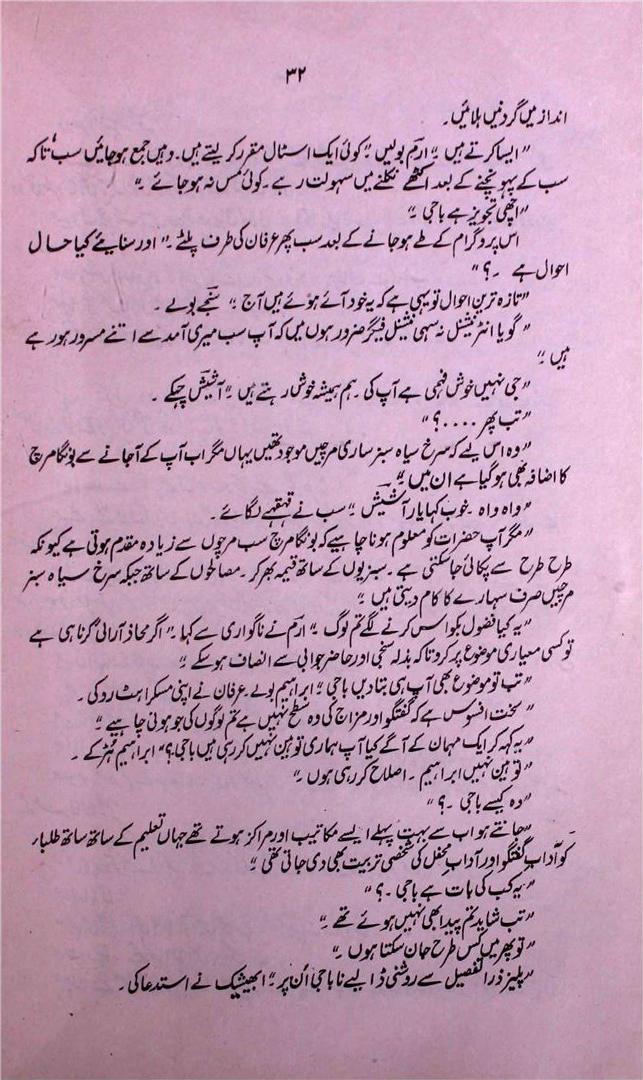 ۳۲
انداز میں گردنیں ہلائیں۔
”ایسا کرتے ہیں“ ارم بولیں ”کوئی ایک اسٹال مقرر کر لیتے ہیں۔ وہیں جمع ہو جائیں سب تاکہ
سب کے پہونچنے کے بعد اکٹھے نکلنے میں سہولت رہے۔ کوئی مس نہ ہو جائے“
”اچھی تجویز ہے باجی“
اس پروگرام کے طے ہو جانے کے بعد سب پھر عرفان کی طرف پلٹے۔ ”اور سنایئے کیا حال
احوال ہے۔؟“
”تازہ ترین احوال تو یہی ہے کہ یہ خود آئے ہوئے ہیں آج“ سنجے بولے۔
”گویا انٹرنیشنل نہ سہی نیشنل فیگر ضرور ہوں میں کہ آپ سب میری آمد سے اتنے مسرور ہو رہے
ہیں“
”جی نہیں خوش فہمی ہے آپ کی۔ ہم ہمیشہ خوش رہتے ہیں“ آشیش چہکے۔
”تب پھر ....؟“
”وہ اس لیے کہ سرخ سیاہ سبز ساری مرچیں موجود تھیں یہاں مگر اب آپ کے آجانے سے بونگا مرچ
کا اضافہ بھی ہو گیا ہے ان میں“۔
”واہ واہ۔ خوب کہا یار آشیش“ سب نے قہقہے لگائے۔
”مگر آپ حضرات کو معلوم ہونا چاہیے کہ بونگا مرچ سب مرچوں سے زیادہ مقدم ہوتی ہے کیونکہ
طرح طرح سے پکائی جا سکتی ہے۔ سبزیوں کے ساتھ قیمہ بھر کر۔ مصالحوں کے ساتھ جبکہ سرخ سیاہ سبز
مرچیں صرف سہارے کا کام دیتی ہیں“
”یہ کیا فضول بکواس کرنے لگے تم لوگ“ ارم نے ناگواری سے کہا ”اگر محاذ آرائی کرنا ہی ہے
تو کسی معیاری موضوع پر کرو تاکہ بذلہ سنجی اور حاضر جوابی سے انصاف ہو سکے“
”تب تو موضوع بھی آپ ہی بتا دیں باجی“ ابراہیم بولے عرفان نے اپنی مسکراہٹ روکی۔
”سخت افسوس ہے کہ گفتگو اور مزاج کی وہ سطح نہیں ہے تم لوگوں کی جو ہونی چاہیے“
”یہ کہہ کر ایک مہمان کے آگے کیا آپ ہماری توہین نہیں کر رہی ہیں باجی؟“ ابراہیم بھڑکے۔
”توہین نہیں ابراہیم۔ اصلاح کر رہی ہوں“
”وہ کیسے باجی۔؟“
”جانتے ہو اب سے بہت پہلے ایسے مکاتیب اور مراکز ہوتے تھے جہاں تعلیم کے ساتھ ساتھ طلباء
کو آداب گفتگو اور آداب محفل کی شخصی تربیت بھی دی جاتی تھی“
”یہ کب کی بات ہے باجی۔؟“
”تب شاید تم پیدا بھی نہیں ہوئے تھے“
”تو پھر میں کس طرح جان سکتا ہوں“
”پلیز ذرا تفصیل سے روشنی ڈالیے نا باجی اُن پر“ ابھیشیک نے استدعا کی۔